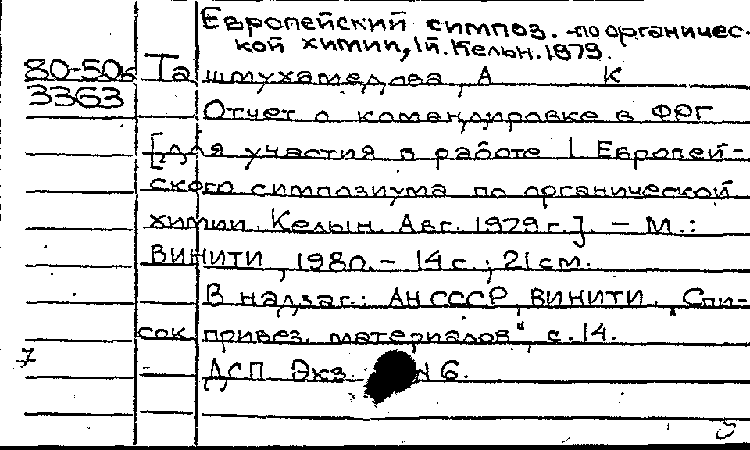 Европейский симпоз. по органичес-
кой химии, 1й. Кельн. 1979.
80-50к Ташмухамедова, А К
3363
Отчет о командировке в ФРГ
[для участия в работе I Европей-
ского симпозиума по органической
химии. Кельн. Авг. 1979 г.]. – М.:
ВИНИТИ, 1980. – 14 с.; 21 см.
В надзаг.: АН СССР, ВИНИТИ. „Спи-
сок привез. материалов“, с. 14.
7
ДСП Экз. N 6.